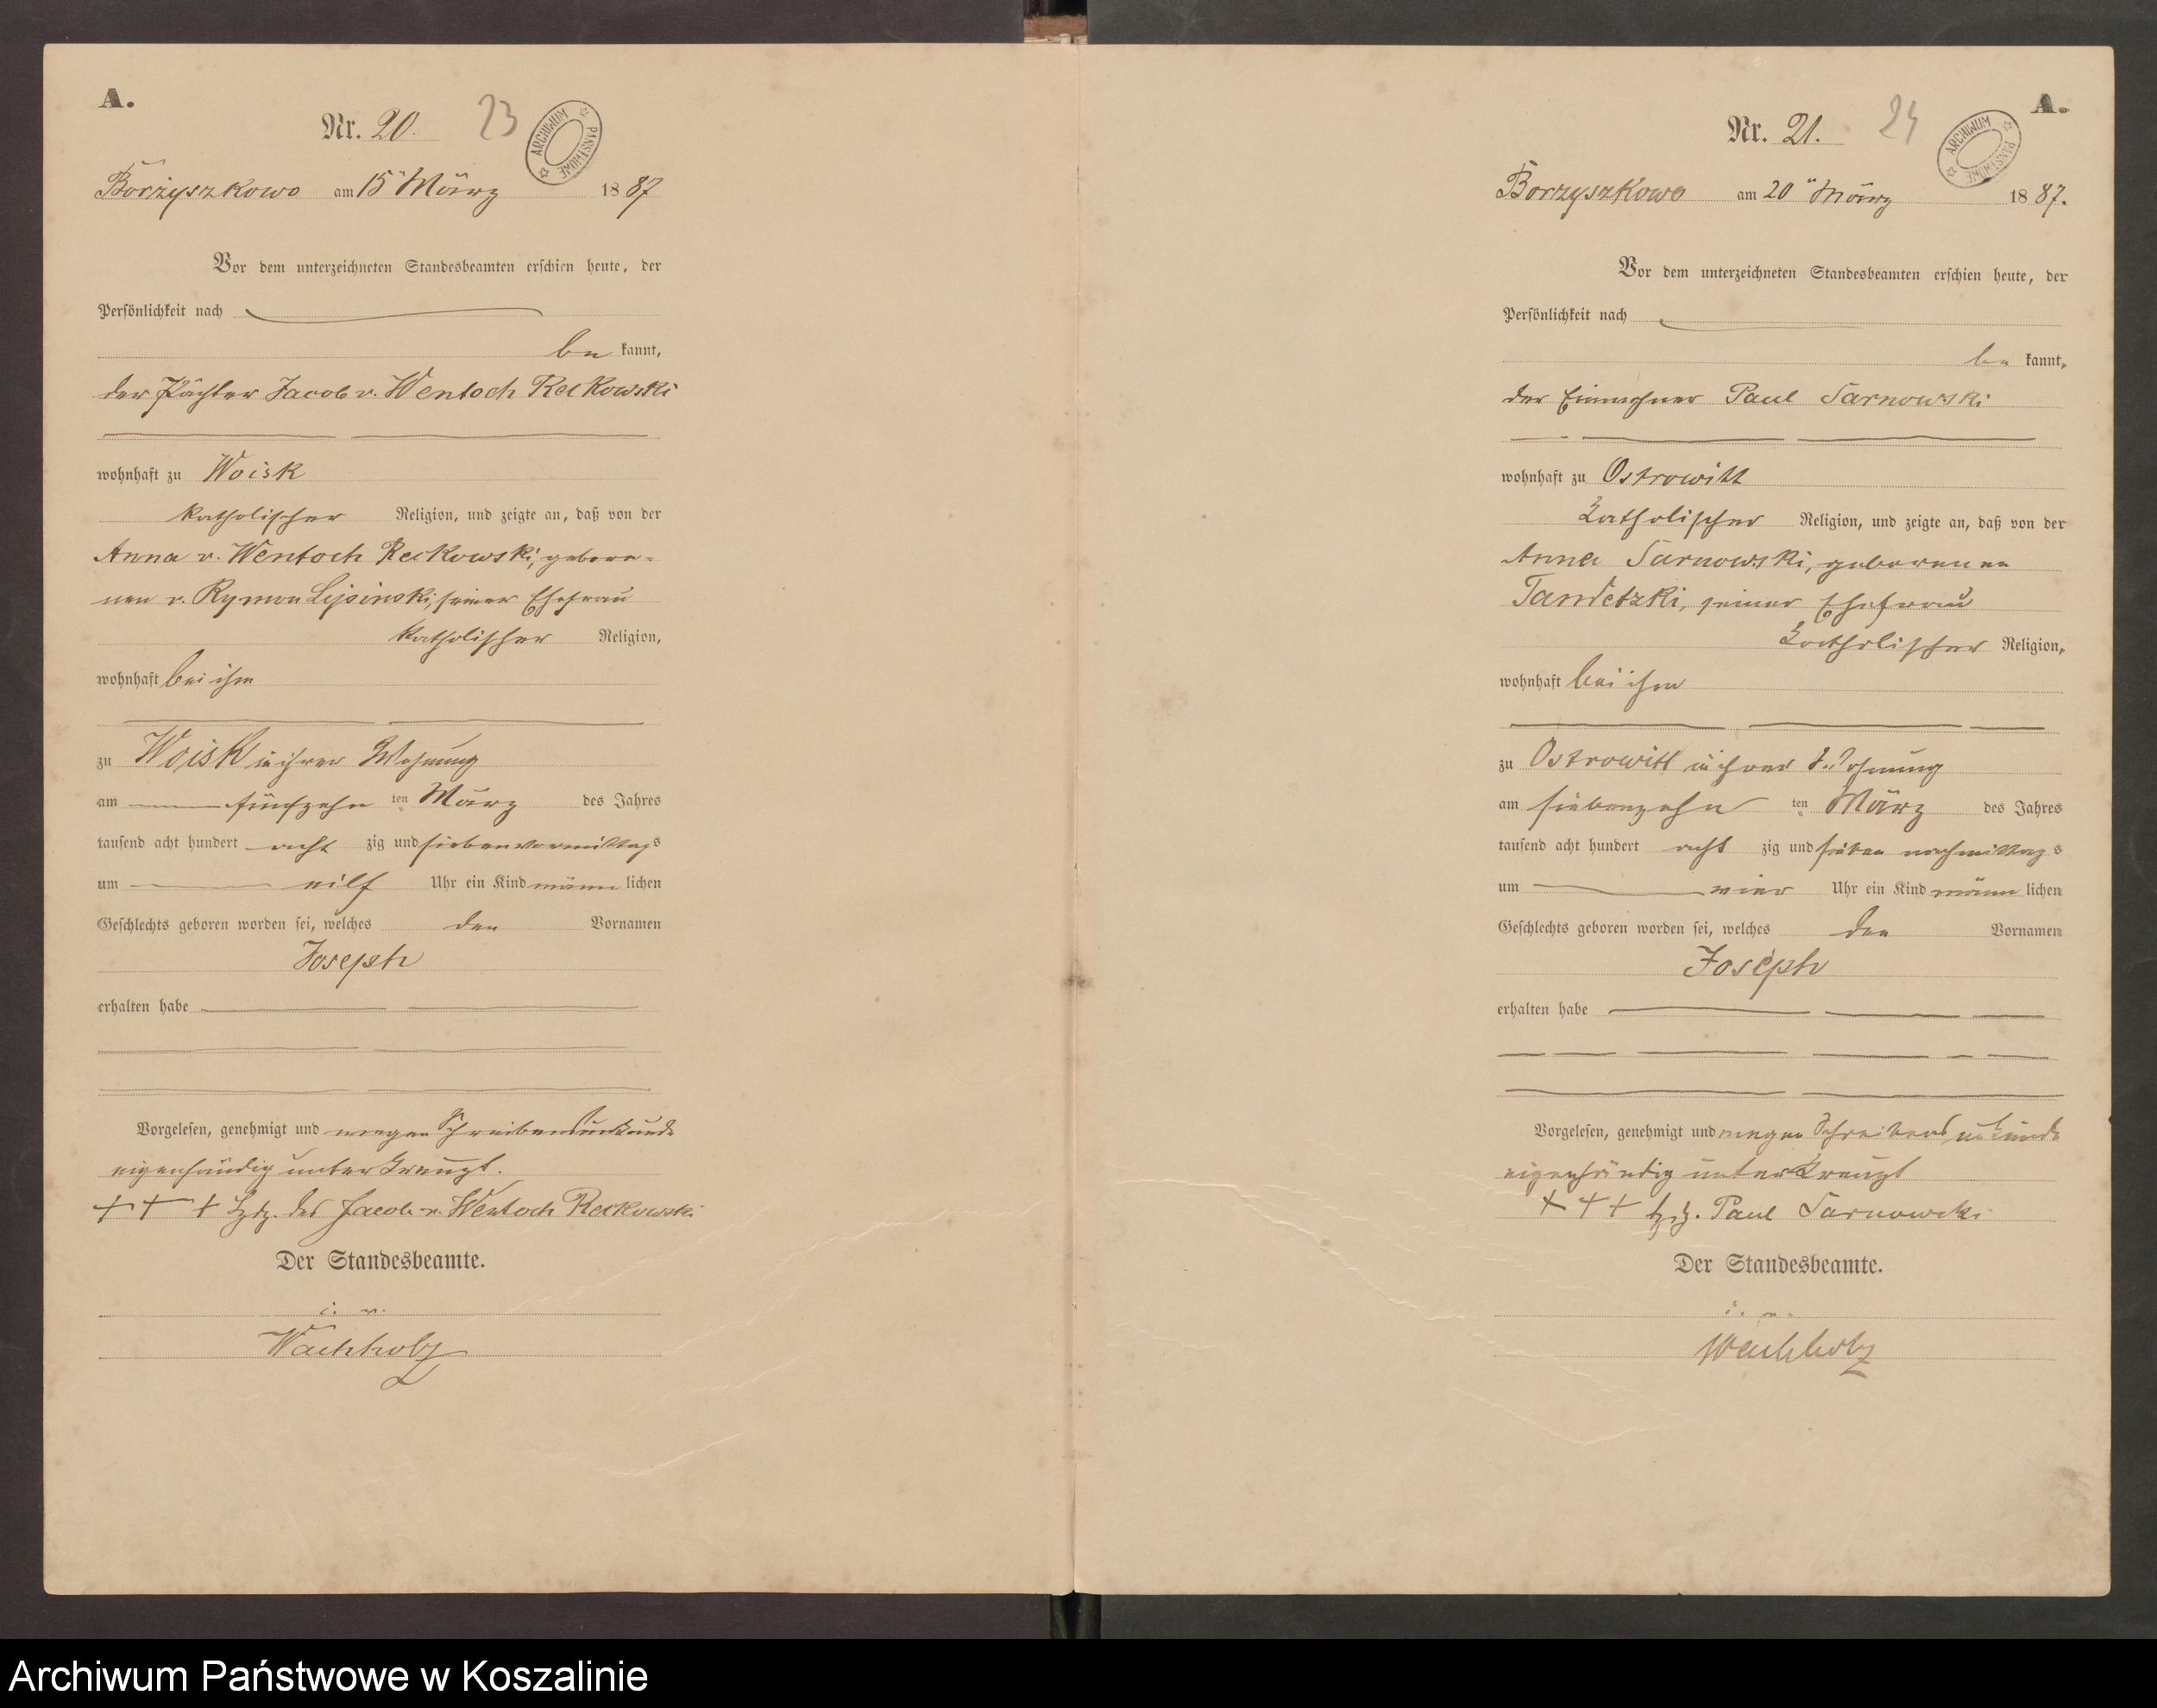 A.
Nr. 20. 23
ARCHIWUM PAŃSTWOWE
Borzyszkowo am 15ᵗ März 1887
Vor dem unterzeichneten Standesbeamten erschien heute, der
Persönlichkeit nach
be kannt,
der Pächter Jacob v. Wentoch Reckowski
wohnhaft zu Woisk
katholischer Religion, und zeigte an, daß von der
Anna v. Wentoch Reckowski, gebore-
nen v. Rymon Lipinski, seiner Ehefrau
katholischer Religion,
wohnhaft bei ihm
zu Woisk in ihrer Wohnung
am fünfzehn ten März des Jahres
tausend acht hundert acht zig und sieben vormittags
um eilf Uhr ein Kind männ lichen
Geschlechts geboren worden sei, welches den Vornamen
Joseph
erhalten habe
Vorgelesen, genehmigt und wegen Schreibensunkunde
eigenhändig unterkreuzt.
+ + + Hdz. des Jacob v. Wentoch Reckowski
Der Standesbeamte.
i. v.
Wachholz
A.
Nr. 21. 24
ARCHIWUM PAŃSTWOWE
Borzyszkowo am 20ᵗ März 1887.
Vor dem unterzeichneten Standesbeamten erschien heute, der
Persönlichkeit nach
be kannt,
der Einwohner Paul Sarnowski
wohnhaft zu Ostrowitt
katholischer Religion, und zeigte an, daß von der
Anna Sarnowski, geborenen
Tandetzki, seiner Ehefrau
katholischer Religion,
wohnhaft bei ihm
zu Ostrowitt in ihrer Wohnung
am siebenzehn ten März des Jahres
tausend acht hundert acht zig und sieben nachmittag s
um vier Uhr ein Kind männ lichen
Geschlechts geboren worden sei, welches den Vornamen
Joseph
erhalten habe
Vorgelesen, genehmigt und wegen Schreibensunkunde
eigenhändig unterkreuzt
+ + + Hdz. Paul Sarnowski
Der Standesbeamte.
i. v.
Wachholz
Archiwum Państwowe w Koszalinie